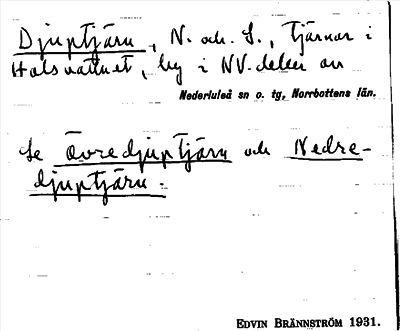 Djuptjärn, N. och S., tjärnar i
Holsvattnet, by i NV. delen av
Nederluleå sn o. tg, Norrbottens län.
Se Övredjuptjärn och Nedre-
djuptjärn.
EDVIN BRÄNNSTRÖM 1931.